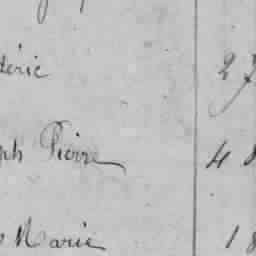 déric 27
ph Pierre 48
Marie 18